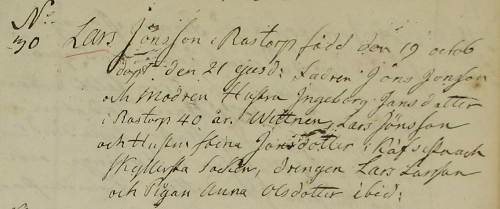 No.
30 Lars Jönsson i Rastorp född den 19 octob
döpt den 21 ejusd: Fadren Jöns Jonsson
och Modren Hustru Ingeborg Jansdotter
i Rastorp 40 år. Wittnen, Lars Jönsson
och Hustru Stina Jönsdotter i och
Skyllersta Socken, drengen Lars Larsson
och Pigan Anna Olsdotter ibid: